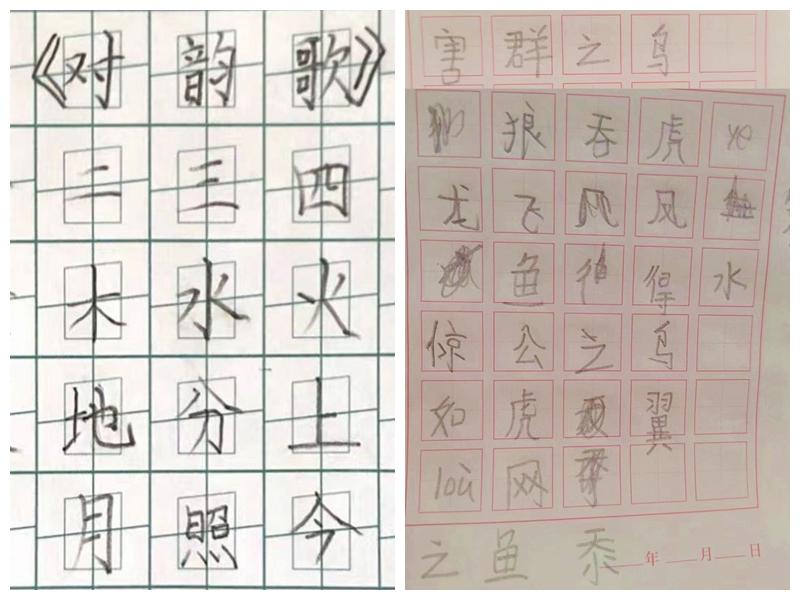 《对韵歌》
二三四
木水火
地分上
月照今
害群之鸟
狼吞虎ye
龙飞风
鱼得水
惊公之鸟
如虎翼
loù网
之鱼
年月日